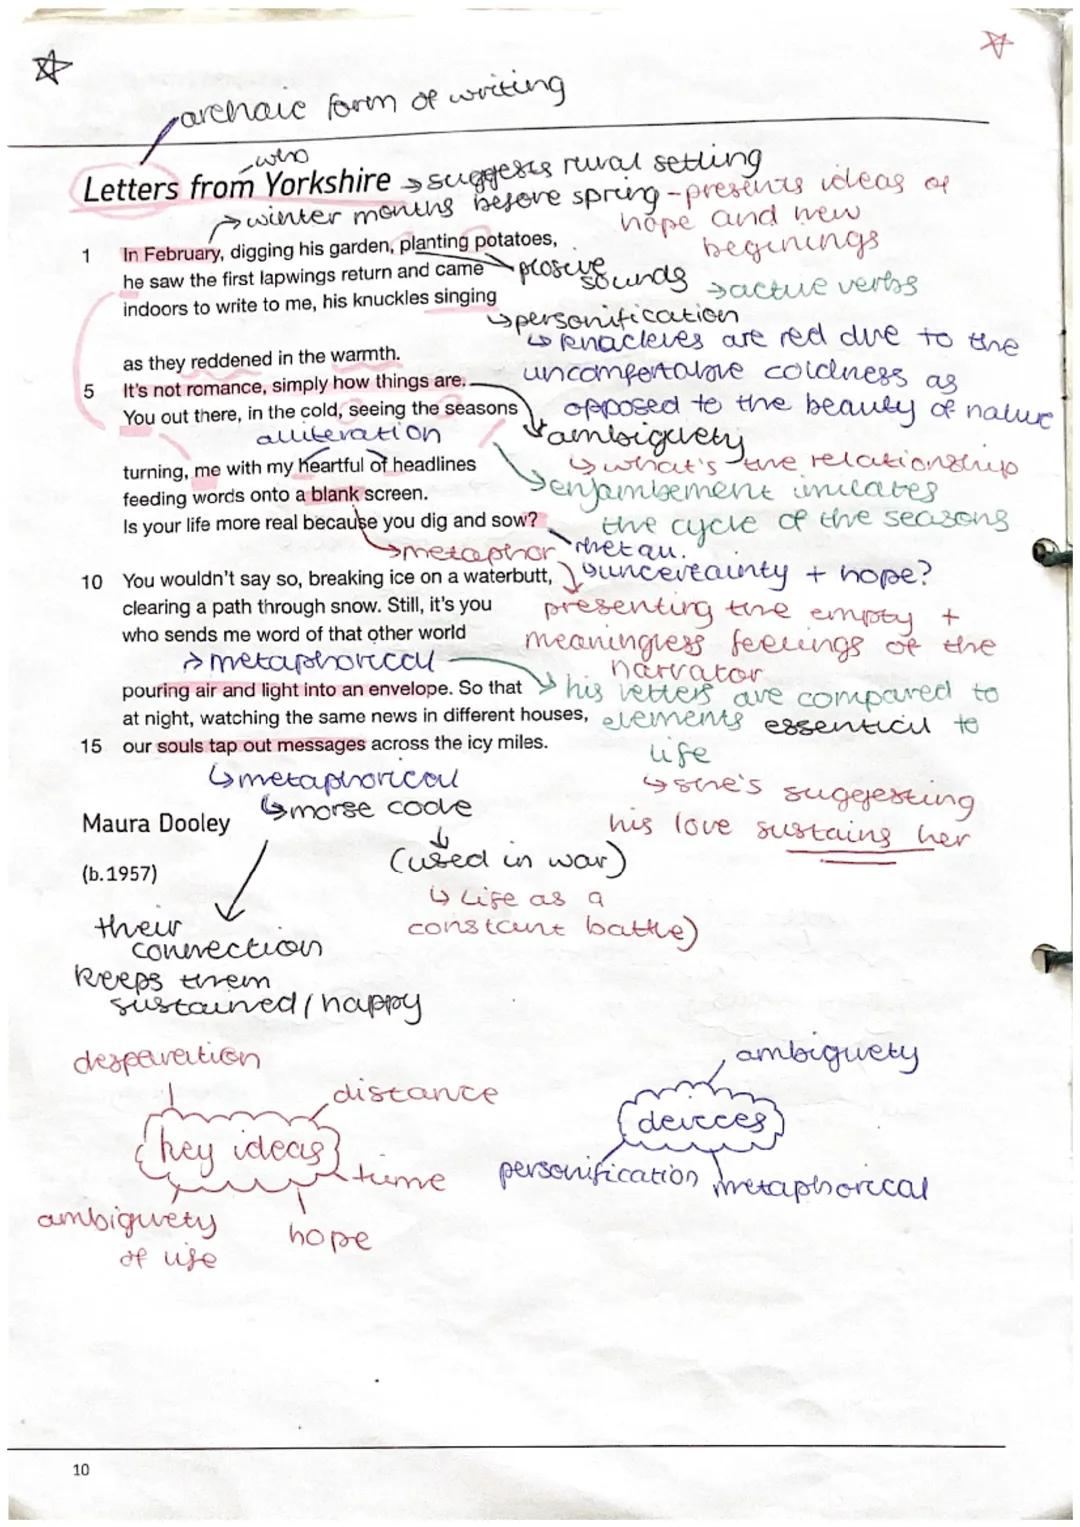 archaic form of writing
who
Letters from Yorkshire → suggests rural setting
→ winter months before spring - presents ideas of
hope and new
beginings
1 In February, digging his garden, planting potatoes,
he saw the first lapwings return and came
plosive sounds
→ active verbs
indoors to write to me, his knuckles singing
↳ personification
↳ knackeves are red due to the
as they reddened in the warmth.
uncomfortable coldness as
5 It's not romance, simply how things are.
opposed to the beauty of nature
You out there, in the cold, seeing the seasons
alliteration
ambiguety
↳ what's the relationship
turning, me with my heartful of headlines
→ enjambement imitates
feeding words onto a blank screen.
the cycle of the seasons
Is your life more real because you dig and sow?
→ metaphor
rhet qu.
↳ uncertainty + hope?
10 You wouldn't say so, breaking ice on a waterbutt,
presenting the empty +
clearing a path through snow. Still, it's you
meaningless feelings of the
who sends me word of that other world
narrator
→ metaphorical
pouring air and light into an envelope. So that
his letters are compared to
at night, watching the same news in different houses,
elements essential to
life
15 our souls tap out messages across the icy miles.
↳ she's suggesting
his love sustains her
↳ metaphorical
↳ morse code
Maura Dooley
(used in war)
(b.1957)
↳ Life as a
constant battle)
their
connection
keeps them
sustained / happy
desperation
distance
key ideas
time
ambiguety
of life
hope
ambiguety
devices
personification
metaphorical
10